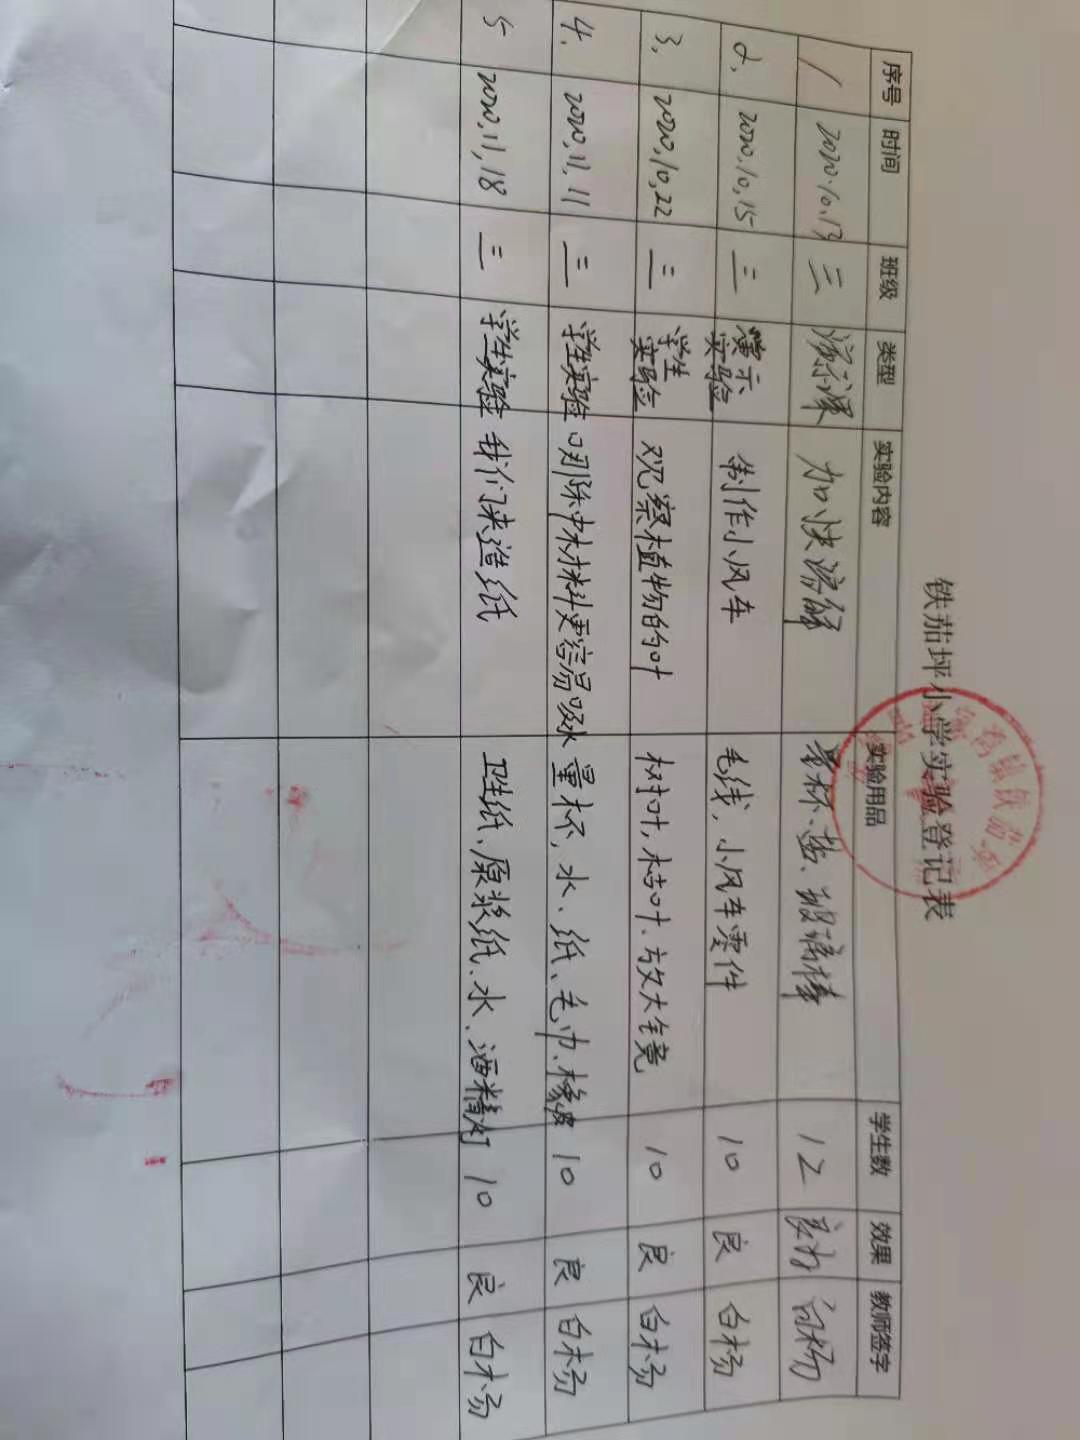 铁茄坪小学实验登记表
序号 时间 班级 类型 实验内容 实验用品 学生数 效果 教师签字
1 2020.10.13 三 演示课 加快溶解 量杯、盐、玻璃棒 12 良好 白杨
2、 2020.10.15 三 演示实验 制作小风车 毛线,小风车零件 10 良 白杨
3、 2020.10.22 三 学生实验 观察植物的叶 树叶,枯叶、放大镜 10 良 白杨
4、 2020.11.11 三 学生实验 哪种材料更容易吸水 量杯,水、纸、毛巾、橡皮 10 良 白杨
5 2020.11.18 三 学生实验 我们来造纸 卫生纸、原浆纸、水、酒精灯 10 良 白杨